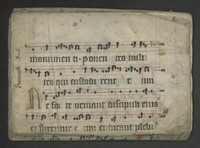 monumen ti ponen tes mili
tes qui custodi rent e um
Ne for te veniant discipuli eius
et furentur e um et dicant plebi